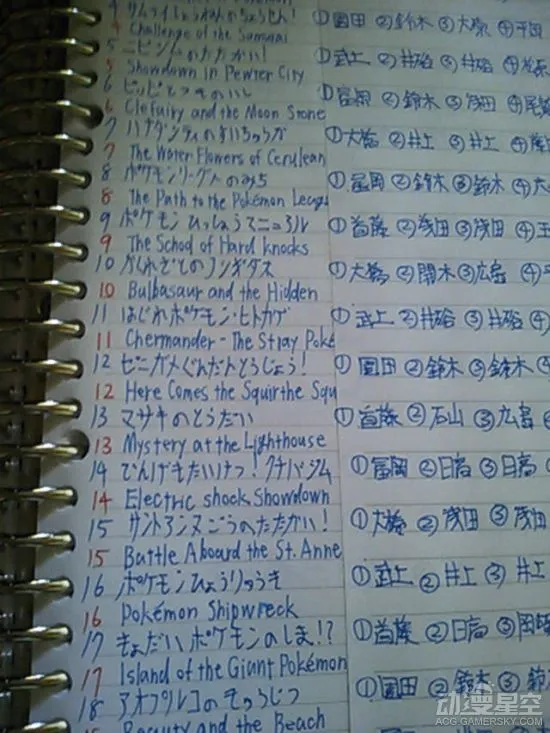 4 サムライしょうねんのちょうせん! ①園田 ②鈴木 ③大塚 ④平岡
4 Challenge of the Samurai
5 ニビジムのたたかい! ①武上 ②井硲 ③井硲 ④松原
5 Showdown in Pewter City
6 ピッピとつきのいし ①冨岡 ②鈴木 ③浅田
6 Clefairy and the Moon Stone
7 ハナダシティのすいちゅうか ①大橋 ②井上 ③井上 ④
7 The Water Flowers of Cerulean
8 ポケモンリーグへのみち ①冨岡 ②鈴木 ③鈴木 ④大
8 The Path to the Pokémon League
9 ポケモンひっしょうマニュアル ①首藤 ②浅田 ③浅田 ④玉
9 The School of Hard knocks
10 かくれざとのフシギダネ ①大橋 ②開木 ③広島 ④
10 Bulbasaur and the Hidden
11 はぐれポケモン・ヒトカゲ ①武上 ②井硲 ③井硲 ④
11 Chermander - The Stray Poké
12 ゼニガメぐんだんとうじょう! ①園田 ②鈴木 ③鈴木 ④
12 Here Comes the Squirthe Squ
13 マサキのとうだい ①首藤 ②石山 ③広島
13 Mystery at the Lighthouse
14 でんげきたいけつ!クチバジム ①冨岡 ②日高 ③日高
14 Electric shock Showdown
15 サントアンヌごうのたたかい! ①大橋 ②浅田 ③浅田
15 Battle Aboard the St. Anne
16 ポケモンひょうりゅうき ①武上 ②井上 ③井上
16 Pokémon Shipwreck
17 きょだいポケモンのしま!? ①首藤 ②日高 ③
17 Island of the Giant Pokémon
18 アオプルコのきゅうじつ ①園田 ②鈴木 ③鈴
Beauty and the Beach
动漫星空
ACG.GAMERSKY.COM